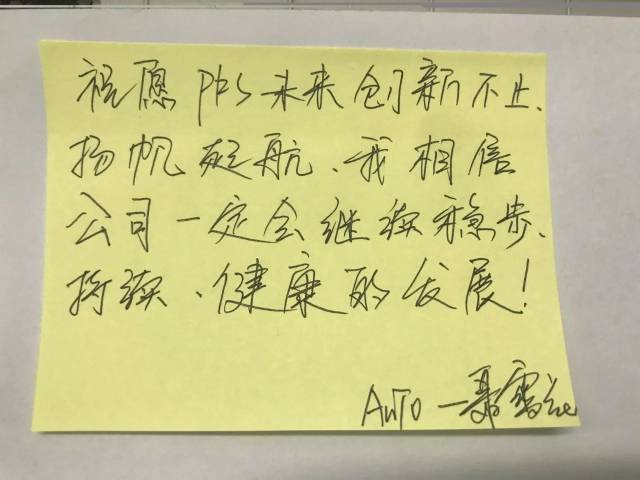 祝愿PHS未来创新不止、
扬帆起航、我相信
公司一定会继续稳步、
持续、健康的发展!
AUTO 一聂雪